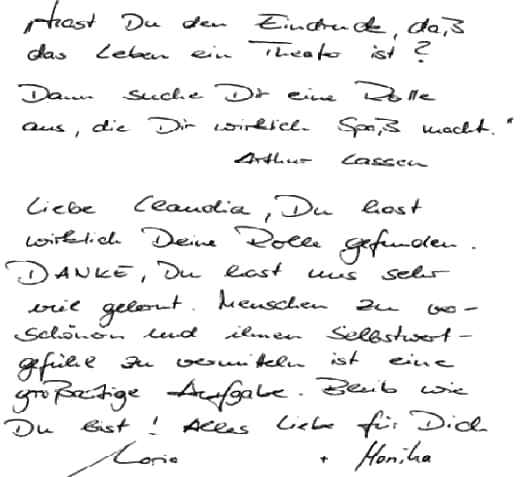 „Hast Du den Eindruck, daß
das Leben ein Theater ist?
Dann suche Dir eine Rolle
aus, die Dir wirklich Spaß macht."
Arthur Lassen
Liebe Claudia, Du hast
wirklich Deine Rolle gefunden.
DANKE, Du hast uns sehr
viel gelernt. Menschen zu ver-
schönern und ihnen Selbstwert-
gefühl zu vermitteln ist eine
großartige Aufgabe. Bleib wie
Du bist! Alles Liebe für Dich
Maria + Monika